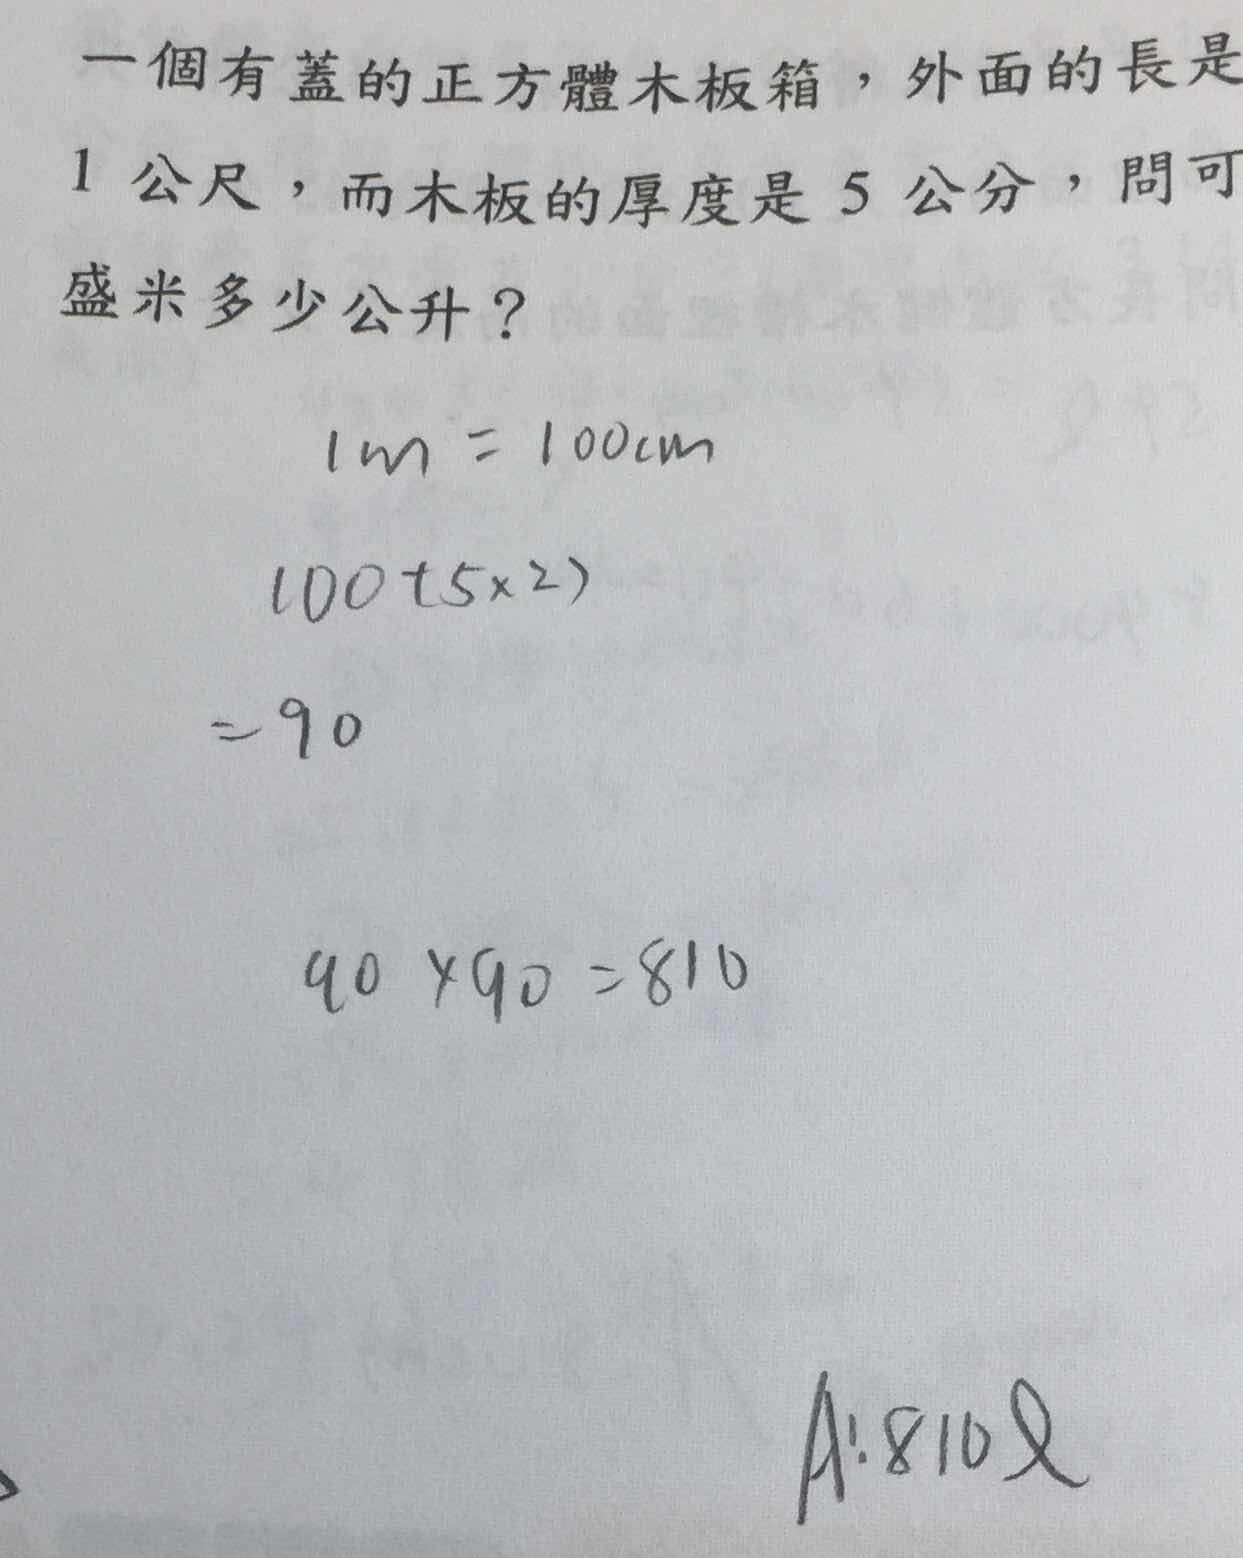 一個有蓋的正方體木板箱，外面的長是
1 公尺，而木板的厚度是 5 公分，問可
盛米多少公升？
1m = 100cm
100-(5×2)
=90
90×90=810
A:810ℓ